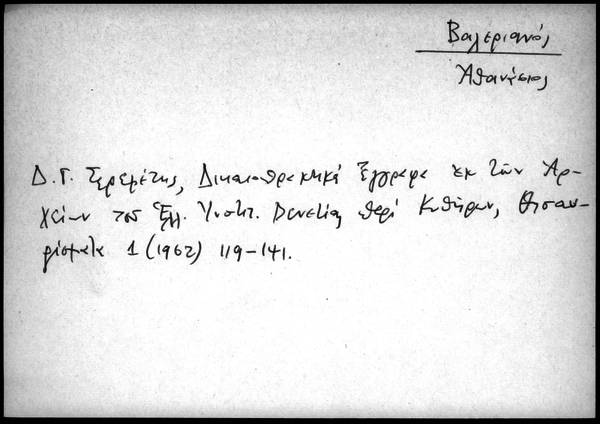 Βαλεριανός
Ἀθανάσιος
Δ. Γ. Σερεμέτης, Δικαιοπρακτικά Ἔγγραφα ἐκ τῶν Ἀρ-
χείων τοῦ Ἑλλ. Ἰνστιτ. Βενετίας περί Κυθήρων, Θησαυ-
ρίσματα 1 (1962) 119-141.